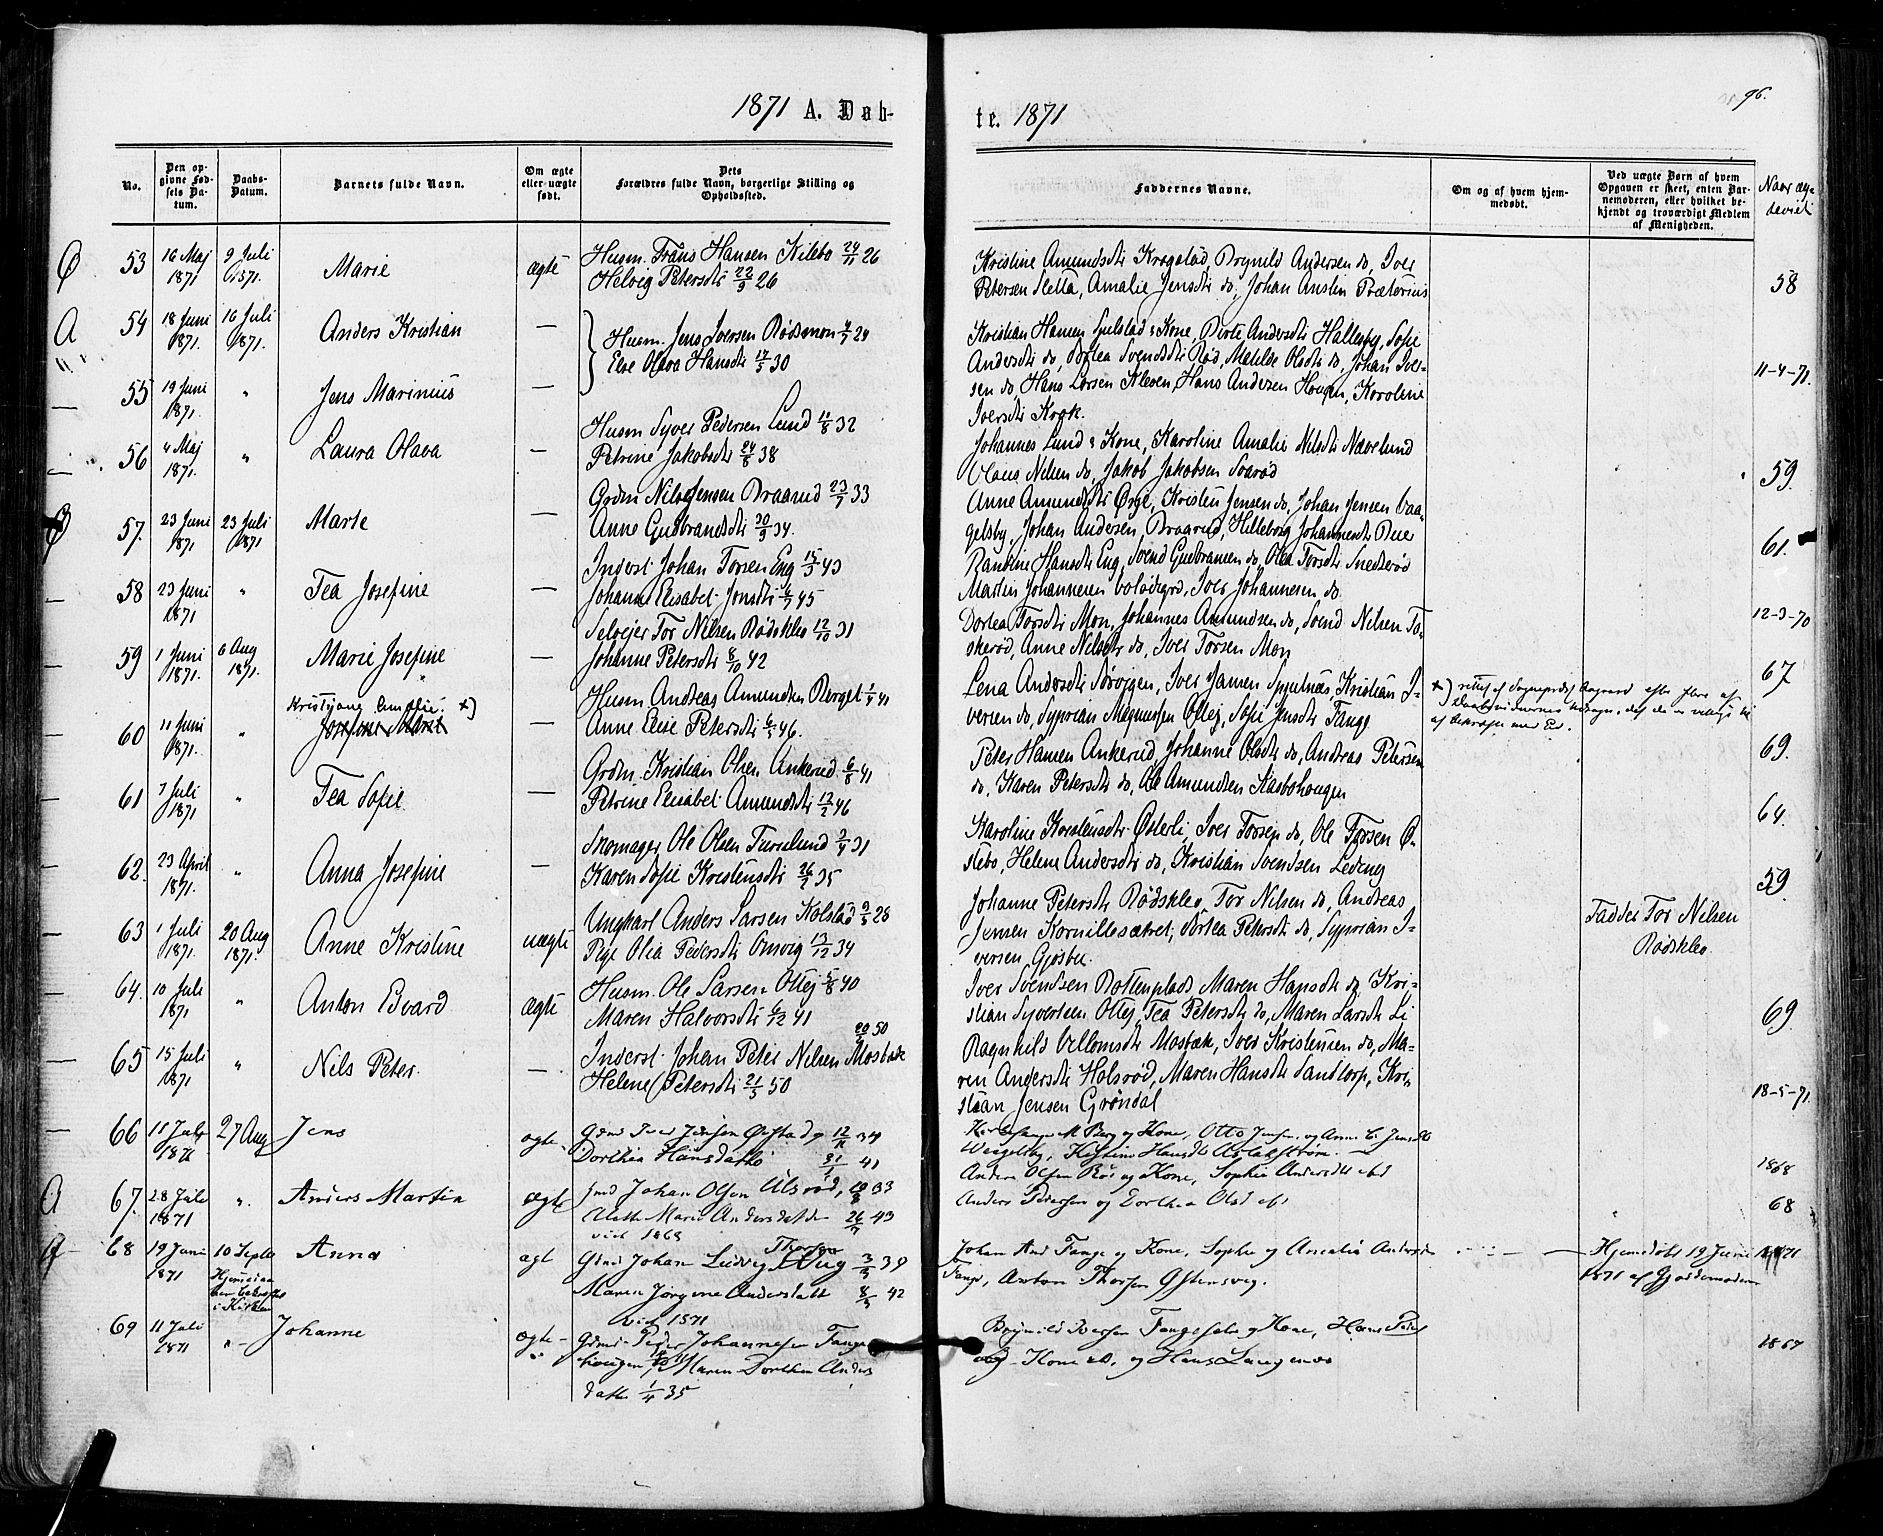 1871 A. Døb-
te. 1871
96.
No.
Den op-
givne Fød-
sels Da-
tum.
Daabs-
Datum.
Barnets fulde Navn.
Om ægte
eller uægte
født.
Dets
Forældres fulde Navn, borgerlige Stilling og
Opholdssted.
Faddernes Navne.
Om og af hvem hjem-
medøbt.
Ved uægte Børn af hvem
Opgaven er skeet, enten Bar-
nemoderen, eller hvilket be-
kjendt og troværdigt Medlem
af Menigheden.
Naar
53 16 Maj 1871 9 Juli 1871. Marie ægte Husm. Frans Hansen Kilebo 24/11 26
Helvig Petersdtr 22/9 26
Kristine Amundsdtr Kragstad, Brynild Andersen do, Iver
Petersen Sletta, Amalie Jensdtr do, Johan Anstin Prætorius
58
54 18 Juni 1871. 16 Juli 1871. Anders Kristian — Husm. Jens Iversen Rødsmon 4/7 29
Else Olava Hansdtr 17/5 30
Kristian Hansen & Kone, Birte Andersdtr Hallesby, Sofie
Andersdtr do, Dortea Svendsdtr Rød, Matilde Olsdtr do, Johan Iver-
55 19 Juni 1871. " Jens Marinius —
sen do, Hans Larsen Kleven, Hans Andersen Hougen, Karoline
Iversdtr Krok.
11-4-71.
56 4 Maj 1871. " Laura Olava — Husm Syver Pedersen Lund 11/8 32
Petrine Jakobsdtr 24/8 38
Johannes Lund & Kone, Karoline Amalie Nilsdtr Naverlund
Claus Nilsen do, Jakob Jakobsen Svarød
59.
57. 23 Juni 1871 23 Juli 1871 Marte — Grdm Nils Jensen Braarud 23/7 33
Anne Gudbrandsdtr 20/9 34.
Anne Amundsdtr Ørge, Kristen Jensen do, Johan Jensen Vaa-
gelsby, Johan Andersen Braarud, Hilleborg Johannesdtr
61.
58 23 Juni 1871 " Tea Josefine — Inderst Johan Torsen Eng 15/3 43
Johanne Elisabet Jonsdtr 6/7 45
Randine Hansdtr Eng, Svend Gudbransen do, Olea Torsdtr Snekkerød
Martin Johannesen, Iver Johannesen do.
12-3-70
59 1 Juni 1871. 6 Aug 1871. Marie Josefine — Selvejer Tor Nilsen Rødsklev 12/10 31
Johanne Petersdtr 8/10 42
Dortea Torsdtr Mon, Johannes Amundsen do, Svend Nilsen To-
skerød, Anne Nilsdtr do, Iver Torsen Mon
67
60 11 Juni 1871. " Kristjane Amalie. x)
Josefine Marie — Husm Andreas Amundsen Berget 1/4 41
Anne Elise Petersdtr 6/5 46.
Lena Andersdtr, Iver Hansen, Kristian I-
versen do, Syprian Magnussen Ottej, Sofie Jensdtr Tange
69.
61 7 Juli 1871 " Tea Sofie — Grdm. Kristian Olsen Ankerud 6/8 41
Petrine Elisabet Amundsdtr 12/2 46
Peter Hansen Ankerud, Johanne Olsdtr do, Andreas Petersen
do, Karen Petersdtr do, Ole Amundsen Stasbohougen
64.
62. 23 April 1871. " Anna Josefine — Skomager Ole Olsen 2/4 31
Karen Sofie Kristensdtr 26/2 35
Karoline Korstensdtr Østerli, Iver Torsen do, Ole Torsen Ø-
stebo, Helene Andersdtr do, Kristian Svendsen Leding
59
63 1 Juli 1871. 20 Aug 1871. Anne Kristine uægte Ungkarl Anders Larsen Kolstad 9/5 28
Pige Olia Pedersdtr 13/12 34
Johanne Petersdtr Rødsklev, Tor Nilsen do, Andreas
Jensen Kornillesætret, Dortea Petersdtr do, Syprian I-
versen Gjøsbu.
Fadder Tor Nilsen
Rødsklev.
64. 10 Juli 1871 " Anton Edvard ægte Husm. Ole Larsen Ottej 5/8 40
Maren Halvorsdtr 6/12 41
Iver Svendsen Rottenplads, Maren Hansdtr do, Kri-
stian Syvertsen Ottej, Tea Petersdtr do, Maren Larsdtr Li
69
65 15 Juli 1871 " Nils Peter. — Inderst Johan Peter Nilsen Mosbæk 20/9 50
Helene Petersdtr 21/5 50
Ragnhild Vellomsdtr Mosbæk, Iver Kristensen do, Ma-
ren Andersdtr Holsrød, Maren Hansdtr Sandtorp, Kri-
stian Jensen Grøndal
18-5-71.
66 11 Juli 1871 27 Aug Jens ægte Gmd Iver Jensen Ørstad 12/11 34
Dorthea Hansdatter 31/1 41
M. Berg og Kone, Otto Jensen og Anne C. Jensdtr
1868
67. 28 Juli 1871 " Anders Martin ægte Gmd Johan Olsen Ulsrød, 10/8 33
Marie Andersdatter 26/7 43
viet 1868
Anders Olsen Røs og Kone, Sophie Andersdtr
Anders Pedersen og Dorthea Olsd
68
68 19 Juni 1871 10 Septbr Anna ægt Gmd Johan Ludvig Thorsen 3/3 39
Maren Jørgine Andersdatt 8/3 42
Viet 1871
Johan And Tange og Kone, Sophie og Amalia Andersd
Tange, Anton Thorsen
Hjemdøbt 19 Juni
1871 af Gjordemoderen
1871
69 11 Juli 1871 " Johanne ægte Gmd Peder Johannesen Tange
hougen, Maren Dorthea Anders
datter 1/4 35
Brynild Iversen og Kone, Hans
Kone og Hans
1867